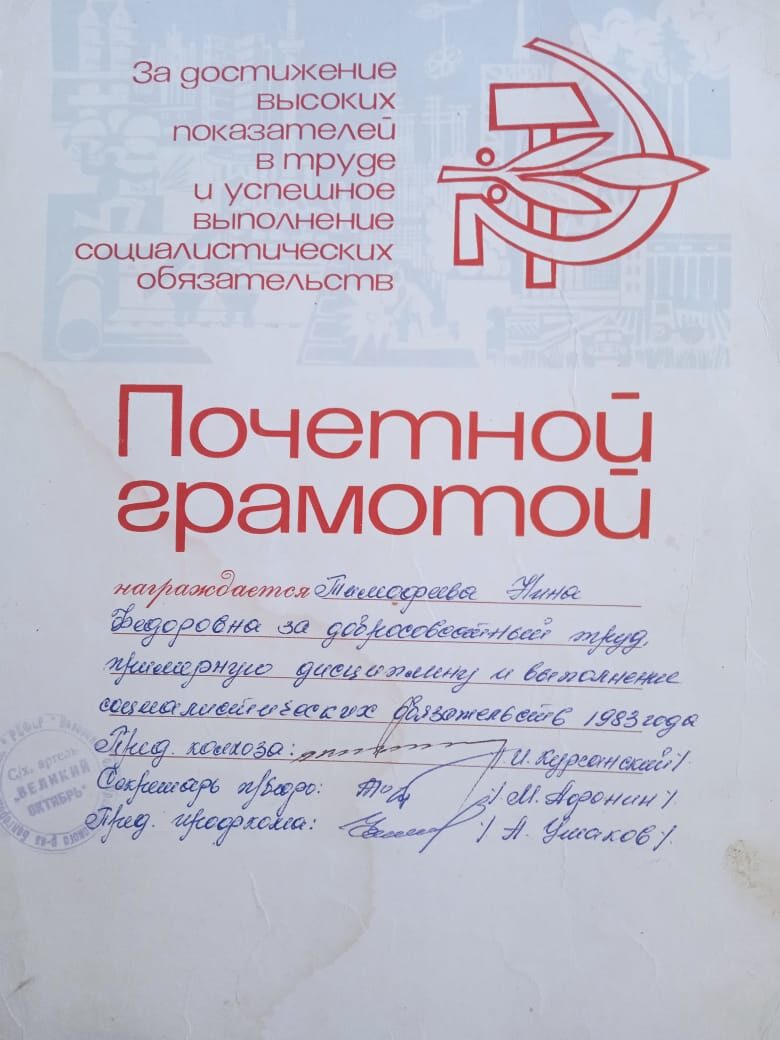 За достижение
высоких
показателей
в труде
и успешное
выполнение
социалистических
обязательств
Почетной
грамотой
награждается Тымофеева Нина
Федоровна за добросовестный труд,
примерную дисциплину и выполнение
социалистических обязательств 1983 года
Пред. колхоза: /И. Курсанский/.
Секретарь п/бюро: /М. Афонин/.
Пред. профкома: /А. Ушаков/.
С/х. артель
"ВЕЛИКИЙ
ОКТЯБРЬ"